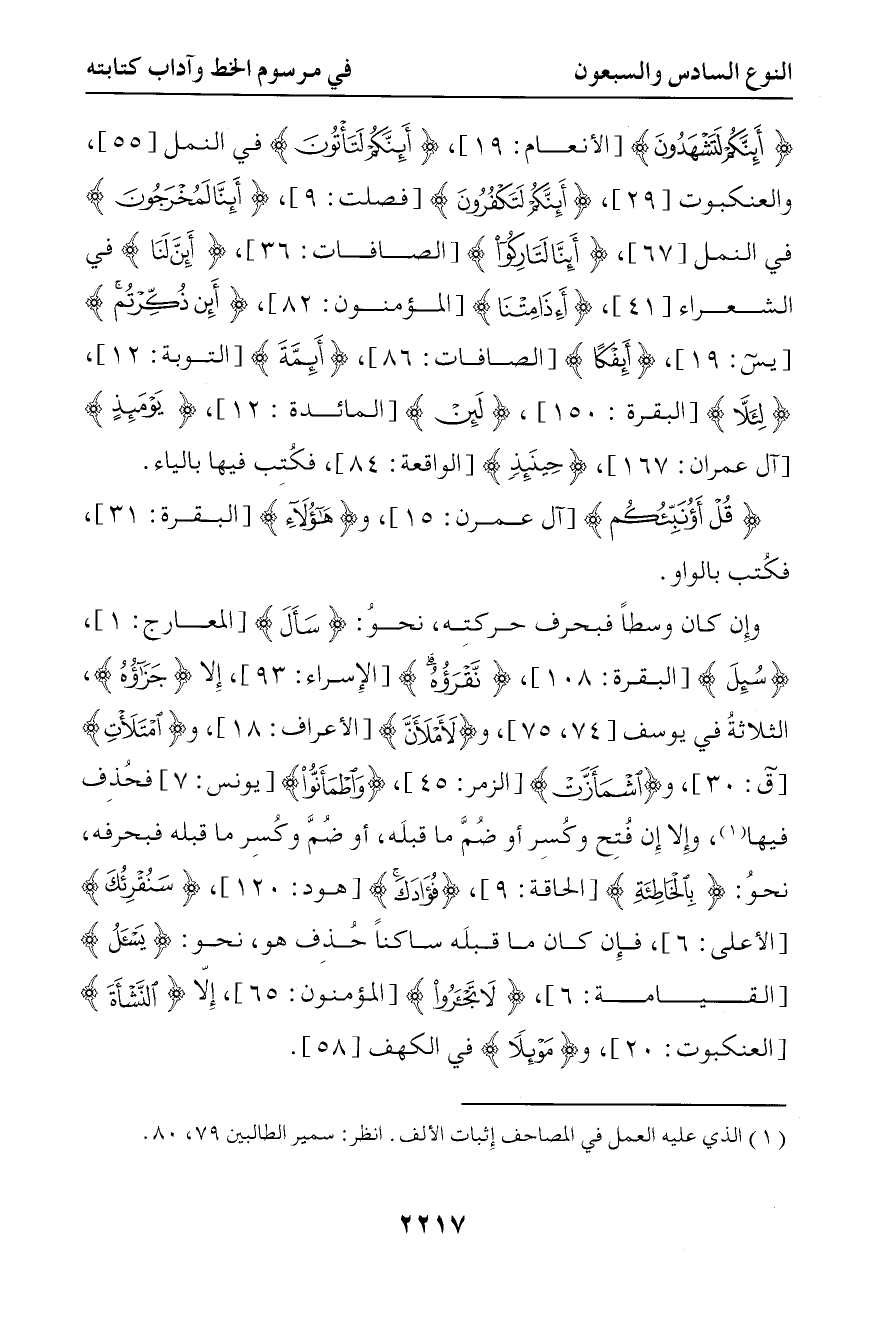 النوع السادس والسبعون في مرسوم الخط وآداب كتابته
﴿ أَئِنَّكُمْ لَتَشْهَدُونَ ﴾ [الأنعـــام: ١٩]، ﴿ أَئِنَّكُمْ لَتَأْتُونَ ﴾ في النمل [٥٥]،
والعنكبوت [٢٩]، ﴿ أَئِنَّكُمْ لَتَكْفُرُونَ ﴾ [فصلت: ٩]، ﴿ أَئِنَّا لَمُخْرَجُونَ ﴾
في النمل [٦٧]، ﴿ أَئِنَّا لَتَارِكُوٓاْ ﴾ [الصـافـات: ٣٦]، ﴿ أَئِنَّ لَنَا ﴾ في
الشعراء [٤١]، ﴿ أَءِذَا مِتْنَا ﴾ [المؤمنون: ٨٢]، ﴿ أَئِن ذُكِّرْتُمۚ ﴾
[يسٓ: ١٩]، ﴿ أَئِفْكًا ﴾ [الصافات: ٨٦]، ﴿ أَئِمَّةَ ﴾ [التوبة: ١٢]،
﴿ لِئَلَّا ﴾ [البقرة : ١٥٠] ، ﴿ لَئِنْ ﴾ [المائدة : ١٢]، ﴿ يَوْمَئِذٍ ﴾
[آل عمران: ١٦٧]، ﴿ حِينَئِذٍ ﴾ [الواقعة: ٨٤]، فكُتب فيها بالياء.
﴿ قُلْ أَؤُنَبِّئُكُم ﴾ [آل عمـرن: ١٥]، و﴿ هَٰٓؤُلَآءِ ﴾ [البقرة: ٣١]،
فكُتب بالواو.
وإن كان وسطاً فبحرف حركته، نحوُ: ﴿ سَأَلَ ﴾ [المعارج: ١]،
﴿ سُئِلَ ﴾ [البقرة: ١٠٨]، ﴿ نَّقْرَؤُهُۥۗ ﴾ [الإسراء: ٩٣]، إلا ﴿ جَزَٰٓؤُهُۥ ﴾،
الثلاثةُ في يوسف [٧٤، ٧٥]، و﴿ لَأَمْلَأَنَّ ﴾ [الأعراف: ١٨]، و﴿ ٱمْتَلَأْتِ ﴾
[قٓ: ٣٠]، و﴿ ٱشْمَأَزَّتْ ﴾ [الزمر: ٤٥]، ﴿ وَٱطْمَأَنُّواْ ﴾ [يونس: ٧] فحُذف
فيها(١)، وإلا إن فُتح وكُسر أو ضُمَّ ما قبلَه، أو ضُمَّ وكُسر ما قبله فبحرفه،
نحوُ: ﴿ بِٱلْخَاطِئَةِ ﴾ [الحاقة: ٩]، ﴿ فُؤَادَكَۚ ﴾ [هود: ١٢٠]، ﴿ سَنُقْرِئُكَ ﴾
[الأعلى: ٦]، فإن كان ما قبلَه ساكناً حُذف هو، نحو: ﴿ يَسْـَٔلُ ﴾
[القـيـامـة: ٦]، ﴿ لَا تَجْـَٔرُواْ ﴾ [المؤمنون: ٦٥]، إلّا ﴿ ٱلنَّشْأَةَ ﴾
[العنكبوت: ٢٠]، و﴿ مَوْئِلًا ﴾ في الكهف [٥٨].
(١) الذي عليه العمل في المصاحف إثبات الألف. انظر: سمير الطالبين ٧٩، ٨٠.
٢٢١٧